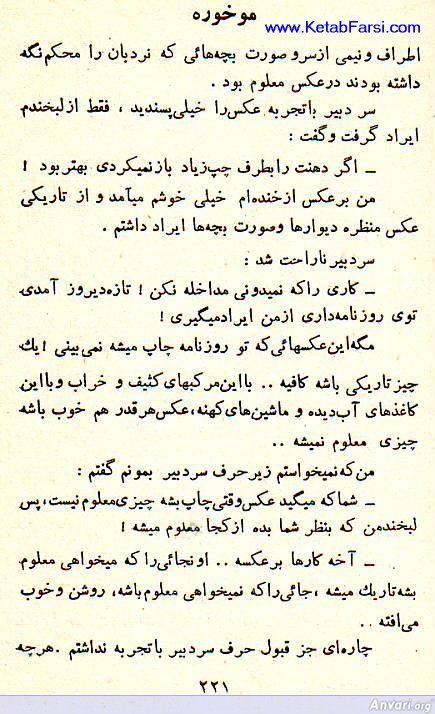 موخوره
www.KetabFarsi.com
اطراف ونیمی ازسرو صورت بچه‌هائی که نردبان را محکم‌نگه
داشته بودند درعکس معلوم بود .
سر دبیر باتجربه عکس‌را خیلی‌پسندید ، فقط ازلبخندم
ایراد گرفت وگفت :
ـ اگر دهنت رابطرف چپ‌زیاد بازنمیکردی بهتربود !
من برعکس ازخنده‌ام خیلی خوشم میآمد و از تاریکی
عکس منظره دیوارها وصورت بچه‌ها ایراد داشتم .
سردبیرناراحت شد :
ـ کاری راکه نمیدونی مداخله نکن ! تازه‌دیروز آمدی
توی روزنامه‌داری ازمن ایرادمیگیری !
مگه‌این‌عکسهائی‌که تو روزنامه چاپ میشه نمی‌بینی ! یك
چیزتاریکی باشه کافیه .. بااین‌مرکبهای کثیف و خراب وبااین
کاغذهای آب‌دیده و ماشین‌های‌کهنه، عکس‌هرقدر هم خوب باشه
چیزی معلوم نمیشه ..
من‌که‌نمیخواستم زیرحرف سردبیر بمونم گفتم :
ـ شماکه میگید عکس‌وقتی‌چاپ‌بشه چیزی‌معلوم‌نیست، پس
لبخندمن که بنظر شما بده ازکجا معلوم میشه !
ـ آخه کارها برعکسه .. اونجائی‌را که میخواهی معلوم
بشه‌تاریك میشه ، جائی‌راکه نمیخواهی معلوم‌باشه، روشن وخوب
می‌افته ..
چاره‌ای جز قبول حرف سردبیر باتجربه نداشتم . هرچه
۲۲۱
Anvari.org